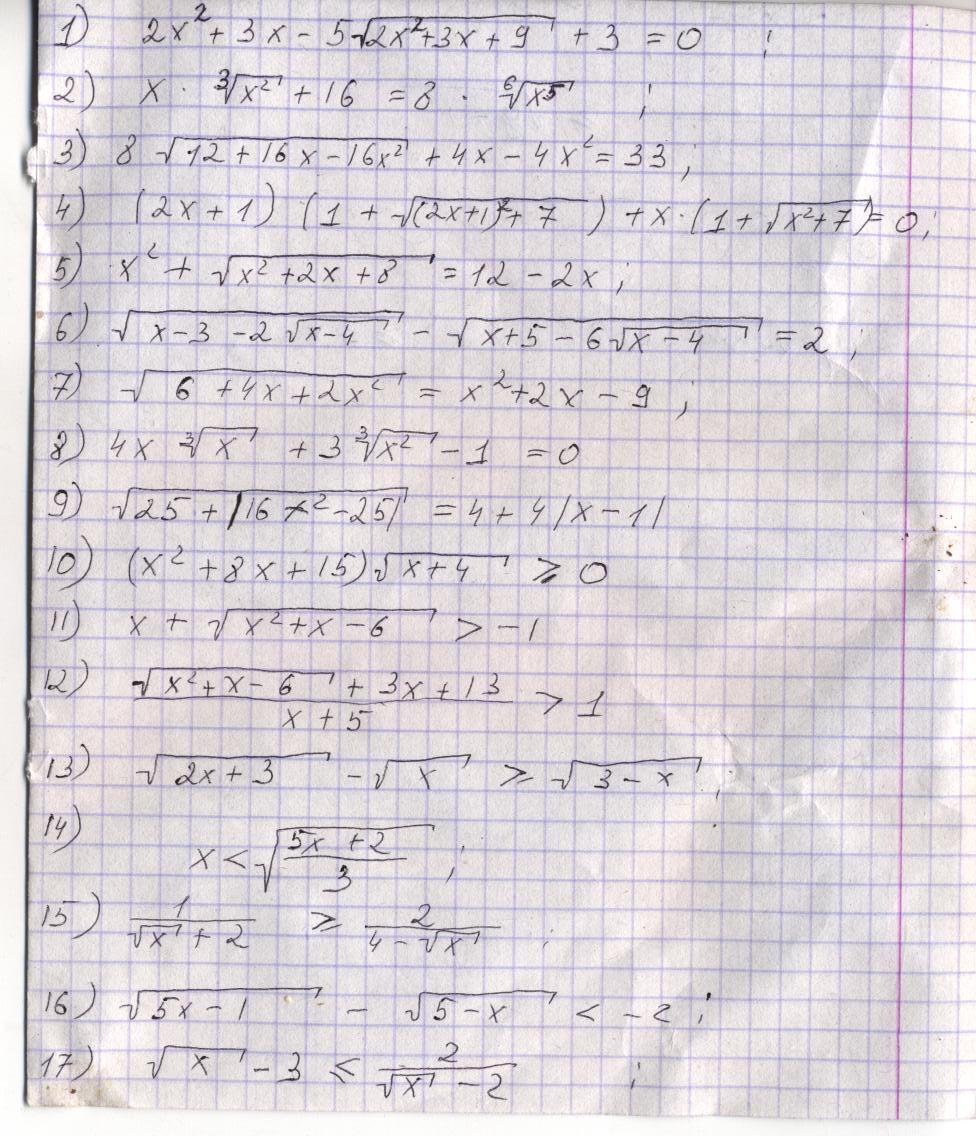 1) 2x² + 3x - 5√(2x²+3x+9) + 3 = 0 ;
2) x · ∛(x²) + 16 = 8 · ⁶√(x⁵) ;
3) 8 √(12+16x-16x²) + 4x - 4x² = 33 ;
4) (2x+1) (1 + √((2x+1)²+7) ) + x·(1+√(x²+7)) = 0 ;
5) x² + √(x²+2x+8) = 12 - 2x ;
6) √(x-3-2√(x-4)) - √(x+5-6√(x-4)) = 2 ;
7) √(6+4x+2x²) = x²+2x-9 ;
8) 4x ∛x + 3∛(x²) - 1 = 0
9) √(25+|16x²-25|) = 4+4|x-1|
10) (x²+8x+15)√(x+4) ⩾ 0
11) x + √(x²+x-6) > -1
12) (√(x²+x-6) + 3x+13)/(x+5) > 1
13) √(2x+3) - √x ⩾ √(3-x) ;
14) x < √((5x+2)/3) ;
15) 1/(√x+2) ⩾ 2/(4-√x) ;
16) √(5x-1) - √(5-x) < -2 ;
17) √x - 3 ⩽ 2/(√x-2) ;